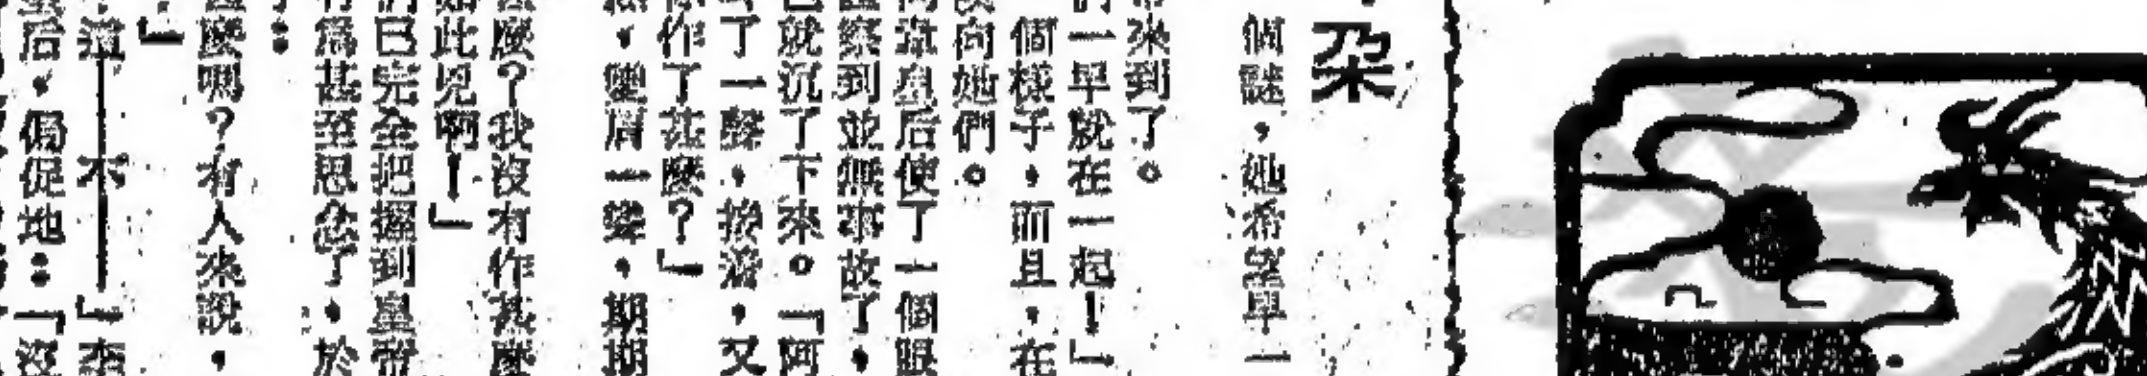 朶
個謎，她希望早一
來到了。
們一早就在一起！」
個樣子，而且，在
向她們。
向皇后使了一個眼
察到並無事故了，
就沉了下來。「阿
了一聲，接着，又
作了甚麼？」
，雙肩一聳，期期
麼？我沒有作甚麼
如此兒啊！」
們已完全把握到皇帝
為甚至思念了，於
：
麼嗎？有人來說，
」
道——不——」李
后，侷促地：「沒